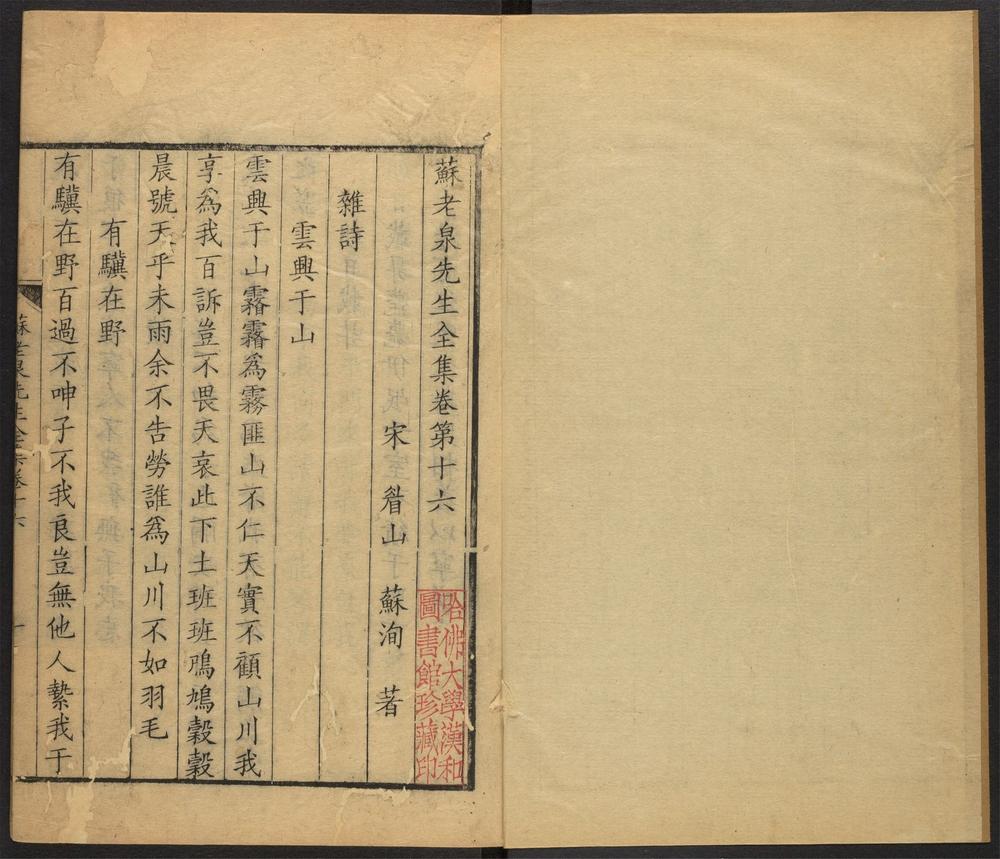 蘇老泉先生全集卷第十六
宋 眉山 蘇洵 著
雜詩
雲興于山
雲興于山霿霿爲霧匪山不仁天實不顧山川我
享爲我百訴豈不畏天哀此下土班班鳲鳩穀穀
晨號天乎未雨余不告勞誰爲山川不如羽毛
有驥在野
有驥在野百過不呻子不我良豈無他人縶我于
蘇老泉先生全集卷十六
哈佛大學漢和
圖書館珍藏印